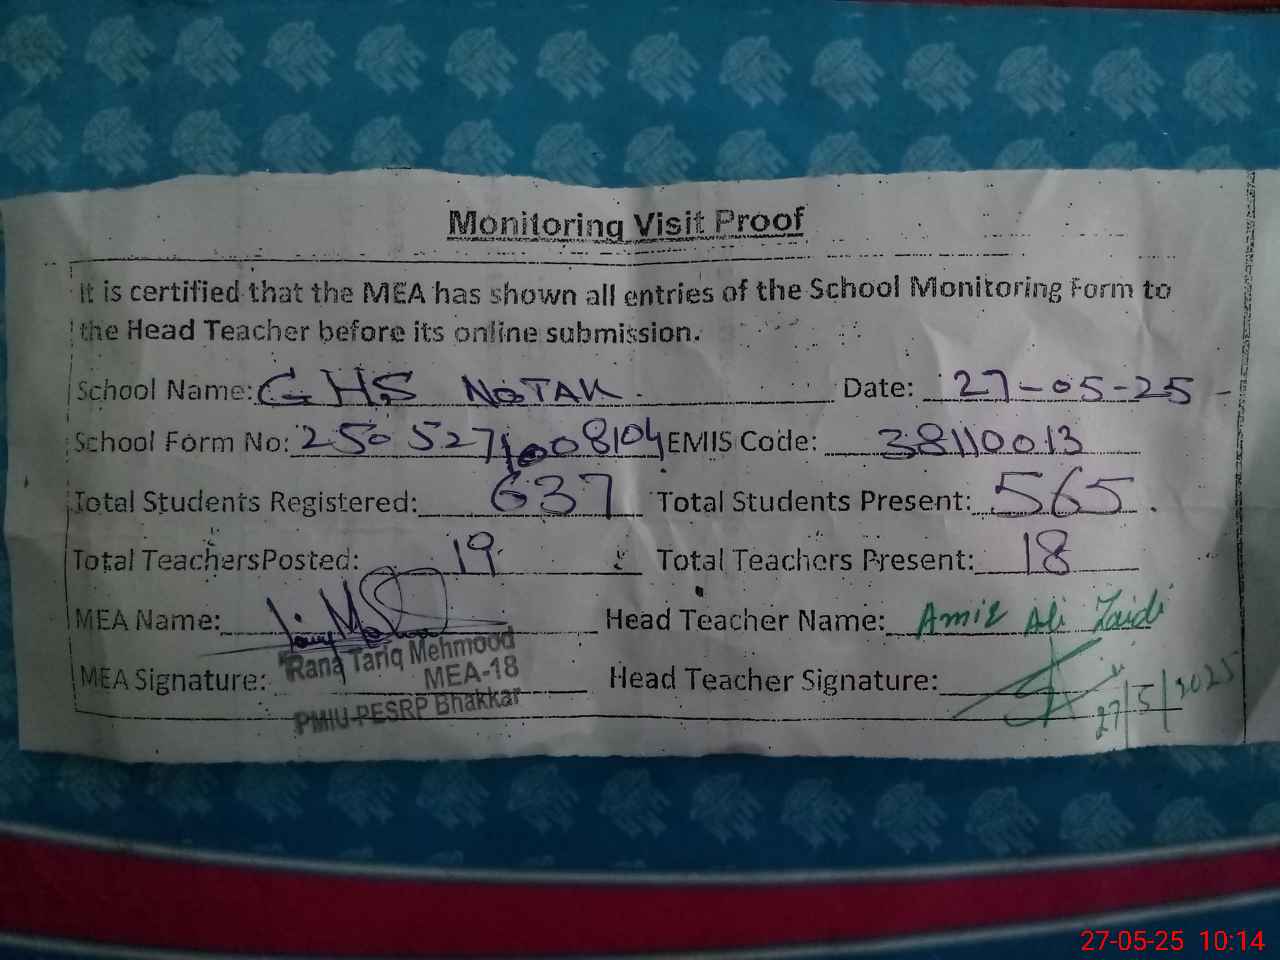 Monitoring Visit Proof
It is certified that the MEA has shown all entries of the School Monitoring Form to
the Head Teacher before its online submission.
School Name: GHS NOTAK. Date: 27-05-25
School Form No: 250527 1008104 EMIS Code: 38110013
Total Students Registered: 637 Total Students Present: 565.
Total TeachersPosted: 19 Total Teachers Present: 18
MEA Name: Head Teacher Name: Amir Ali Zaidi
Rana Tariq Mehmood
MEA-18
MEA Signature: Head Teacher Signature:
PMIU-PESRP Bhakkar
27/5/2025
27-05-25 10:14